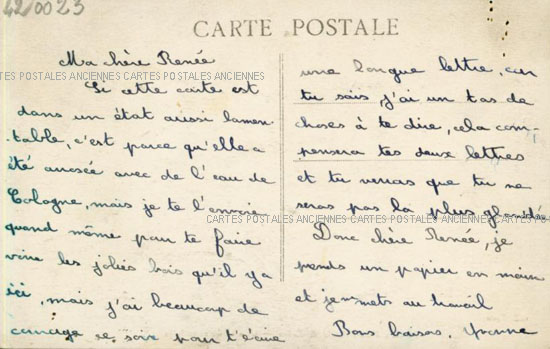 42/0023
CARTE POSTALE
Ma chère Renée
Si cette carte est
dans un état aussi lamen-
table, c'est parce qu'elle a
été arrosée avec de l'eau de
Cologne, mais je te l'envoie
quand même pour te faire
voir les jolies bois qu'il y a
ici, mais j'ai beaucoup de
courage ce soir pour t'écrire
une longue lettre, car
tu sais j'ai un tas de
choses à te dire, cela com-
pensera tes deux lettres
et tu verras que tu ne
seras pas la plus grondée
Donc chère Renée, je
prends un papier en main
et je me mets au travail
Bons baisers, Yvonne
CARTES POSTALES ANCIENNES CARTES POSTALES ANCIENNES
CARTES POSTALES ANCIENNES CARTES POSTALES ANCIENNES